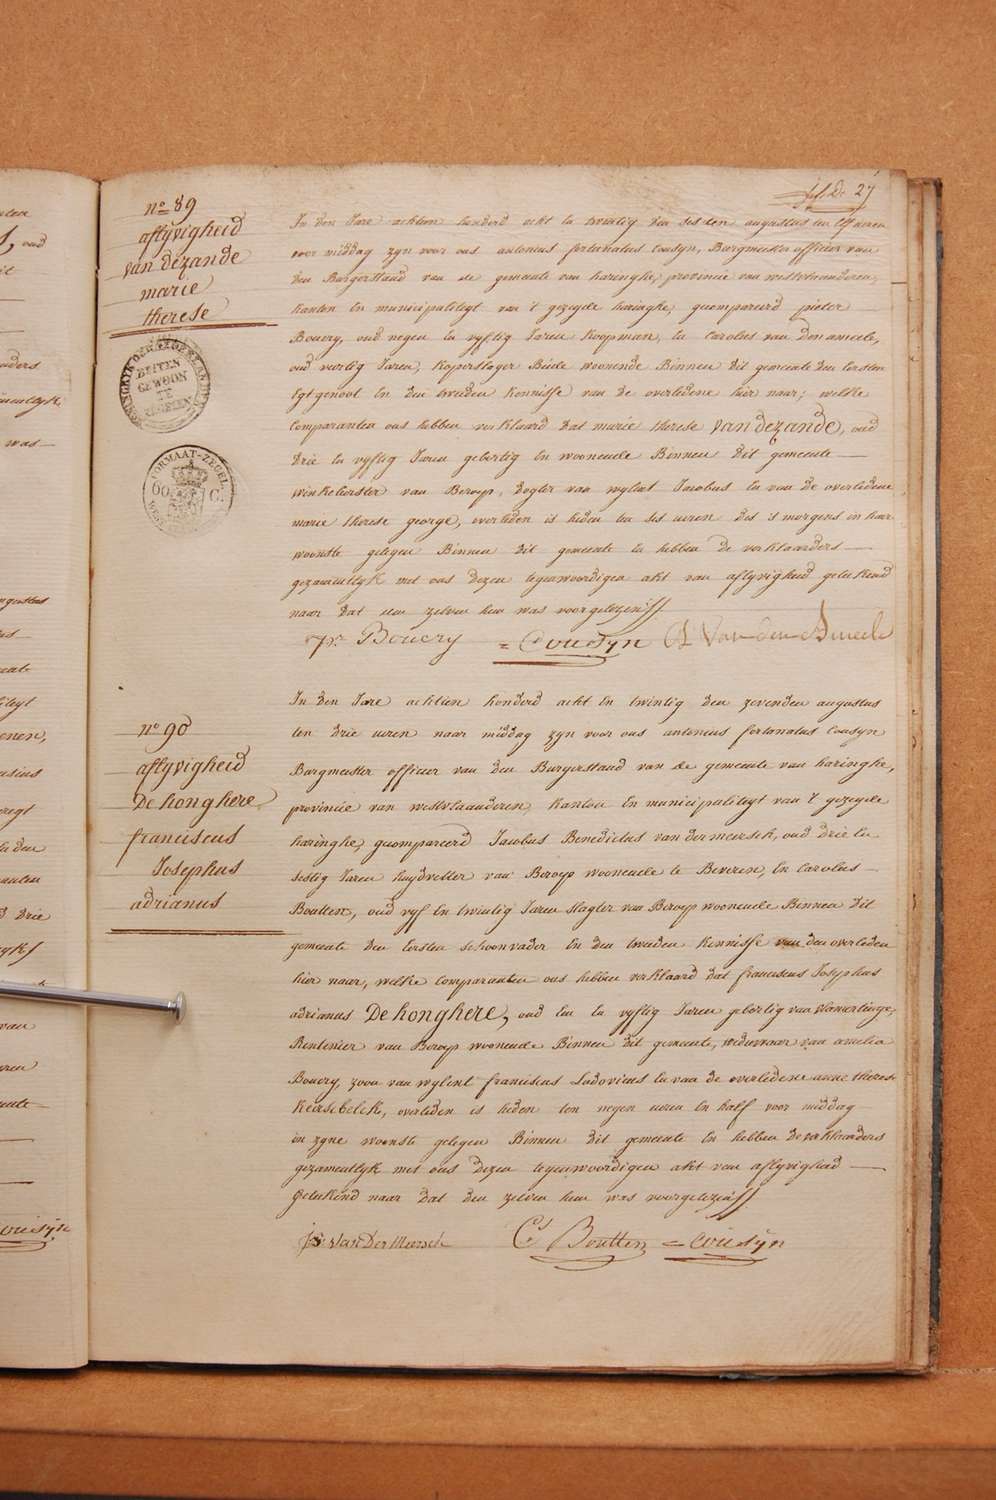 27
n.º 89
aflyvigheid
van dezande
marie
therese
BUITEN
GEWOON
TE
ZEGELEN
FORMAAT-ZEGEL
60 C.
In den Jare achtien honderd acht en twintig den sesden augustus ten elf uren
voor middag zyn voor ons antonius fortunatus Cousyn, Burgmeester officier van
den Burgerstand van de gemeente van haringhe, provincie van westvlaanderen,
kanton En municipaliteyt van 't gezeyde haringhe, gecompareerd pieter
Bouery, oud negen en vyftig Jaren koopman, en Carolus van den ameele,
oud veertig Jaren, koperslager Beide woonende Binnen dit gemeente den Eersten
Egtgenoot En den tweeden kennisse van de overledene hier naar; welke
Comparanten ons hebben verklaard dat marie therese van dezande, oud
drie en vyftig Jaren gebortig En woonende Binnen dit gemeente
winkelierster van Beroep, dogter van wylent Jacobus En van de overledene
marie therese george, overleden is heden ten ses uren des 's morgens in haar
woonste gelegen Binnen dit gemeente En hebben de verklaarders
gezamentlyk met ons dezen tegenwoordigen akt van aflyvigheid geteekend
naar dat een zelven hun was voorgelezen
pr. Bouery = Cousyn Van den Ameele
n.º 90
aflyvigheid
De honghere
franciscus
Josephus
adrianus
In den Jare achtien honderd acht En twintig den zevenden augustus
ten drie uren naar middag zyn voor ons antonius fortunatus Cousyn
Burgmeester officier van den Burgerstand van de gemeente van haringhe,
provincie van westvlaanderen, kanton En municipaliteyt van 't gezeyde
haringhe, gecompareerd Jacobus Benedictus van der meersch, oud drie en
sestig Jaren huydvetter van Beroep woonende te Beveren, En Carolus
Boutten, oud vyf En twintig Jaren slagter van Beroep woonende Binnen dit
gemeente den Eersten schoonvader En den tweeden kennisse van den overleden
hier naar, welke comparanten ons hebben verklaard dat franciscus Josephus
adrianus De honghere, oud Een En vyftig Jaren gebortig van vlamertinge,
Rentenier van Beroep woonende Binnen dit gemeente, weduwaar van amelia
Bouery, zoon van wylent franciscus Ludovicus En van de overledene anne therese
Kersebelck, overleden is heden ten negen uren En half voor middag
in zyne woonste gelegen Binnen dit gemeente En hebben de verklaarders
gezamentlyk met ons dezen tegenwoordigen akt van aflyvigheid
geteekend naar dat den zelven hun was voorgelezen
Van Der Meersch Cs Boutten = Cousyn